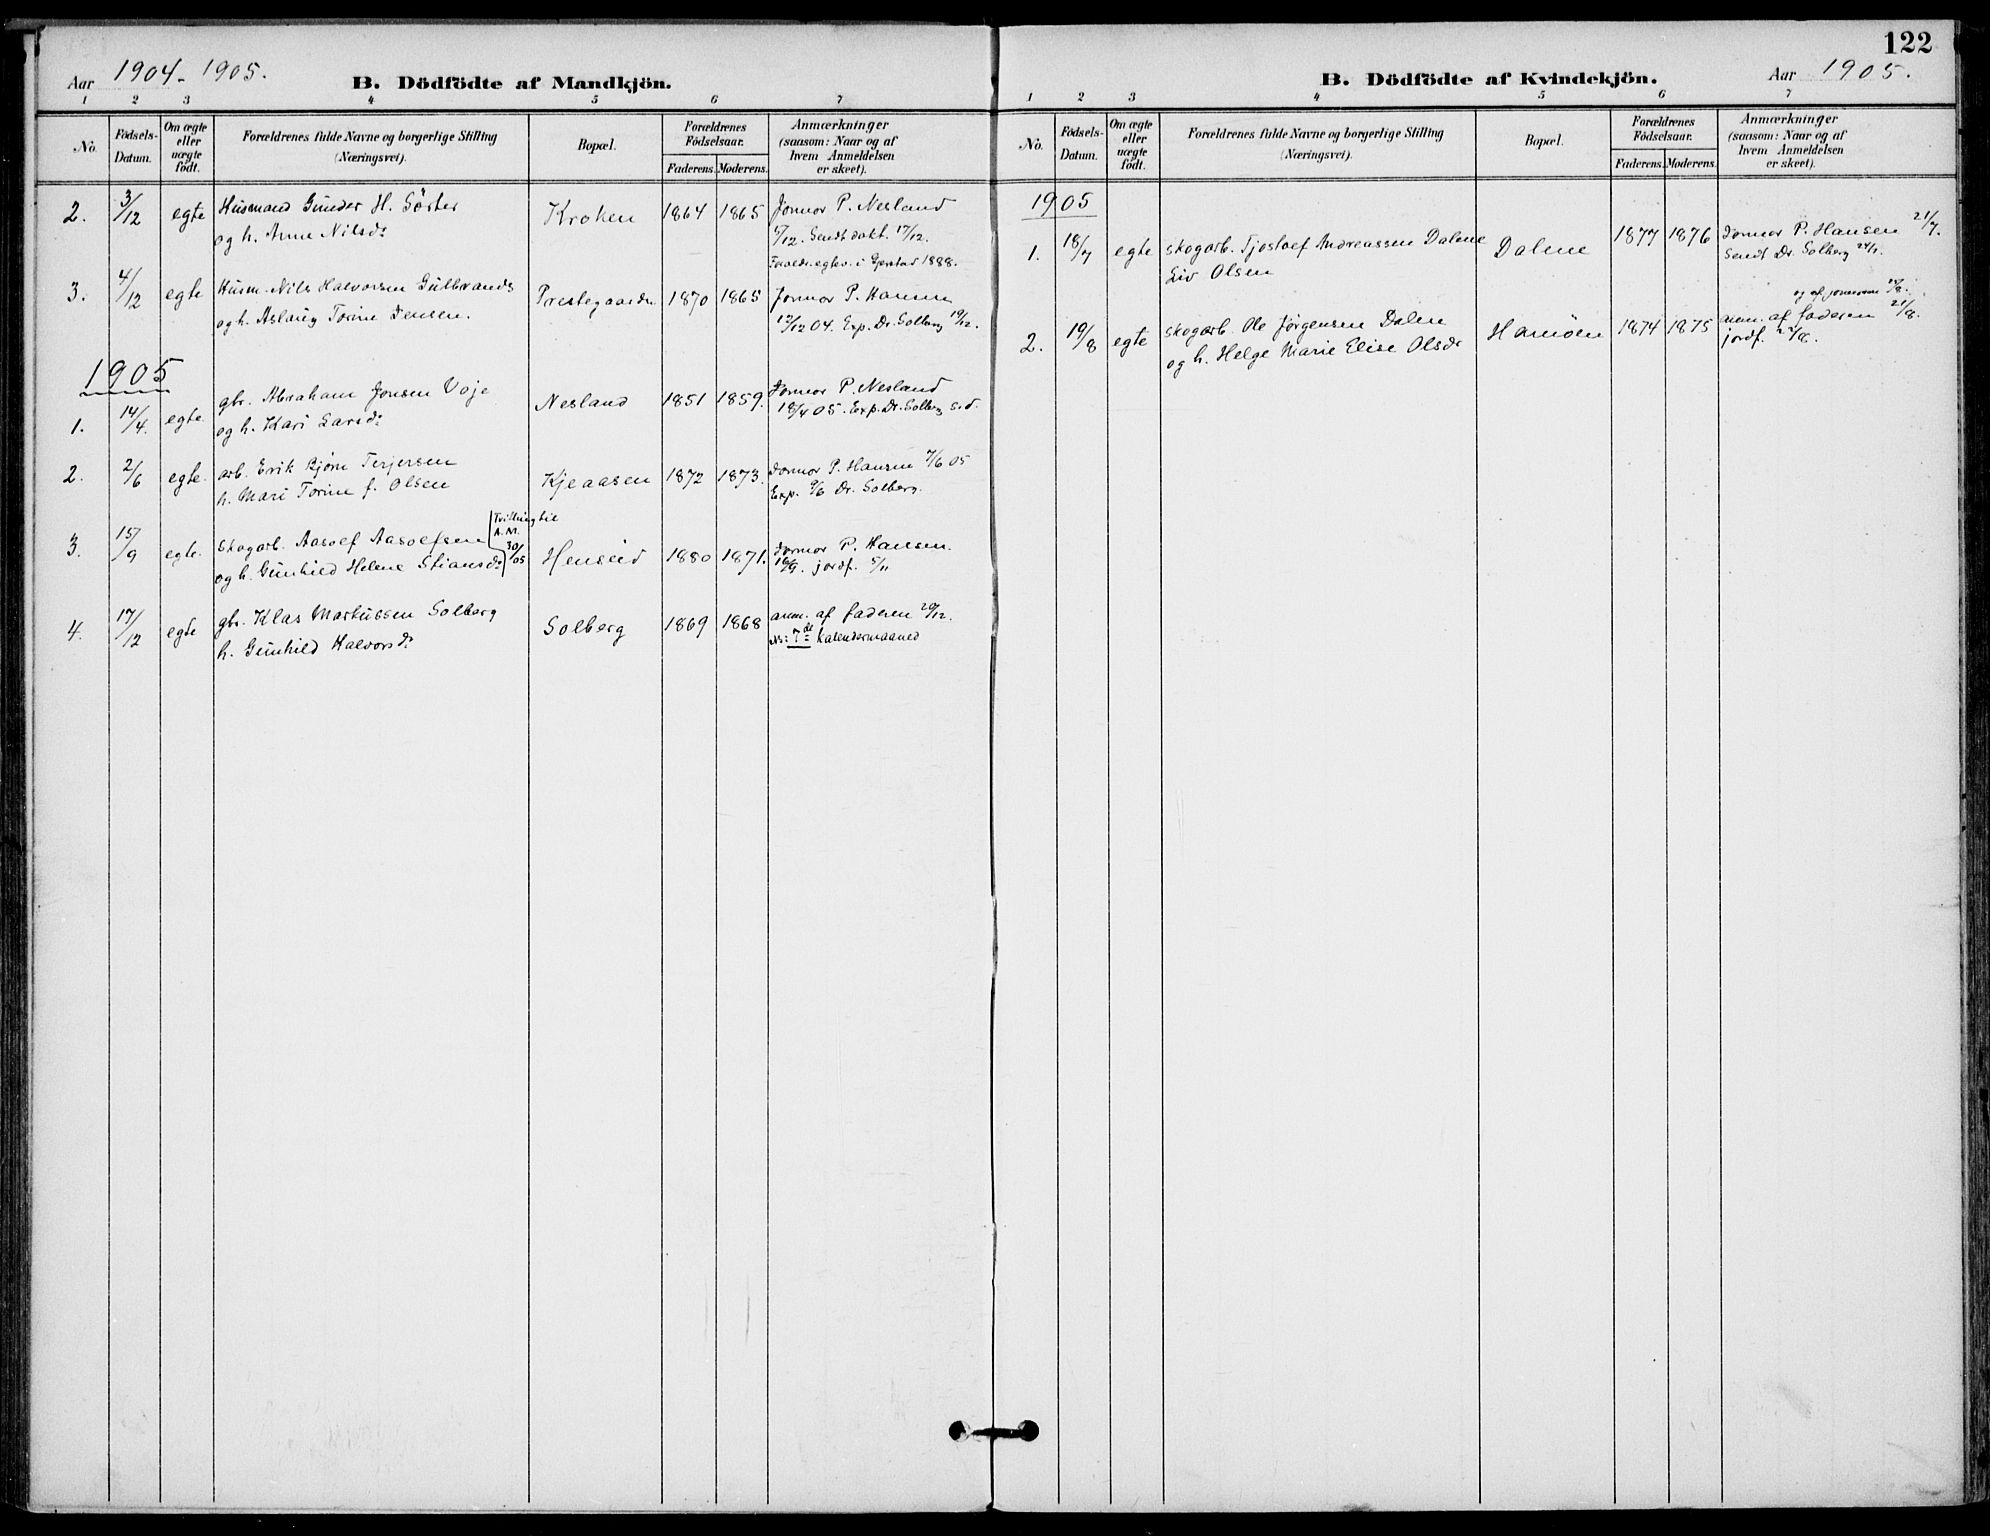 122
Aar 1904-1905.
B. Dödfödte af Mandkjön.
1 2 3 4 5 6 7
No.
Födsels-Datum.
Om ægte eller uægte födt.
Forældrenes fulde Navne og borgerlige Stilling (Næringsvei).
Bopæl.
Forældrenes Födselsaar.
Faderens. Moderens.
Anmærkninger (saasom: Naar og af hvem Anmeldelsen er skeet).
2. 3/12 egte Husmand Gunder H. Söster
og h. Anne Nilsd:
Kroken 1864 1865 Jormor P. Nesland
/12. Sendt dokt. 17/12.
Foreldr. egtev. i Gjerstad 1888.
3. 4/12 egte Husm. Nils Halvorsen Gulbrands
og h. Aslaug Torine Jensen.
Prestegaarden 1870 1865 Jormor P. Hansen
12/12 04. Exp. Dr. Solberg 19/12.
1905
1. 14/4. egte. gbr. Abraham Jonsen Voje
og h. Kari Larsd:
Nesland 1851 1859. Jormor P. Nesland
18/4 05. Exp. Dr. Solberg s.d.
2. 2/6 egte. arb. Erik Bjørn Terjersen
h. Mari Torine f. Olsen
Kjeaasen 1872 1873. Jormor P. Hansen 7/6 05
Exp. 9/6 Dr. Solberg.
3. 15/9 egte. Skogarb. Aasolf Aasolfsen
og h. Gunhild Helene Stiansd:
Tvilling til
A. M.
30/ 05
Henseid 1880 1871. Jormor P. Hansen.
16/9. jordf. 5/11
4. 17/12 egte gbr. Klas Markussen Solberg
h. Gunhild Halvorsd:
Solberg 1869 1868 anm. af faderen 20/12.
7de kalendermaaned
B. Dödfödte af Kvindekjön.
Aar 1905.
1 2 3 4 5 6 7
No.
Födsels-Datum.
Om ægte eller uægte födt.
Forældrenes fulde Navne og borgerlige Stilling (Næringsvei).
Bopæl.
Forældrenes Födselsaar.
Faderens. Moderens.
Anmærkninger (saasom: Naar og af hvem Anmeldelsen er skeet).
1905
1. 18/7 egte skogarb. Tjostolf Andreassen Dalene
Liv Olsen
Dalene 1877 1876 Jormor P. Hansen 21/7.
Sendt Dr. Solberg 24/7.
2. 19/8 egte skogarb. Ole Jørgensen Dalen
og h. Helge Marie Elise Olsdr
Hamöen 1874 1875 anm. af faderen 21/8.
og af jormoren
jordf.